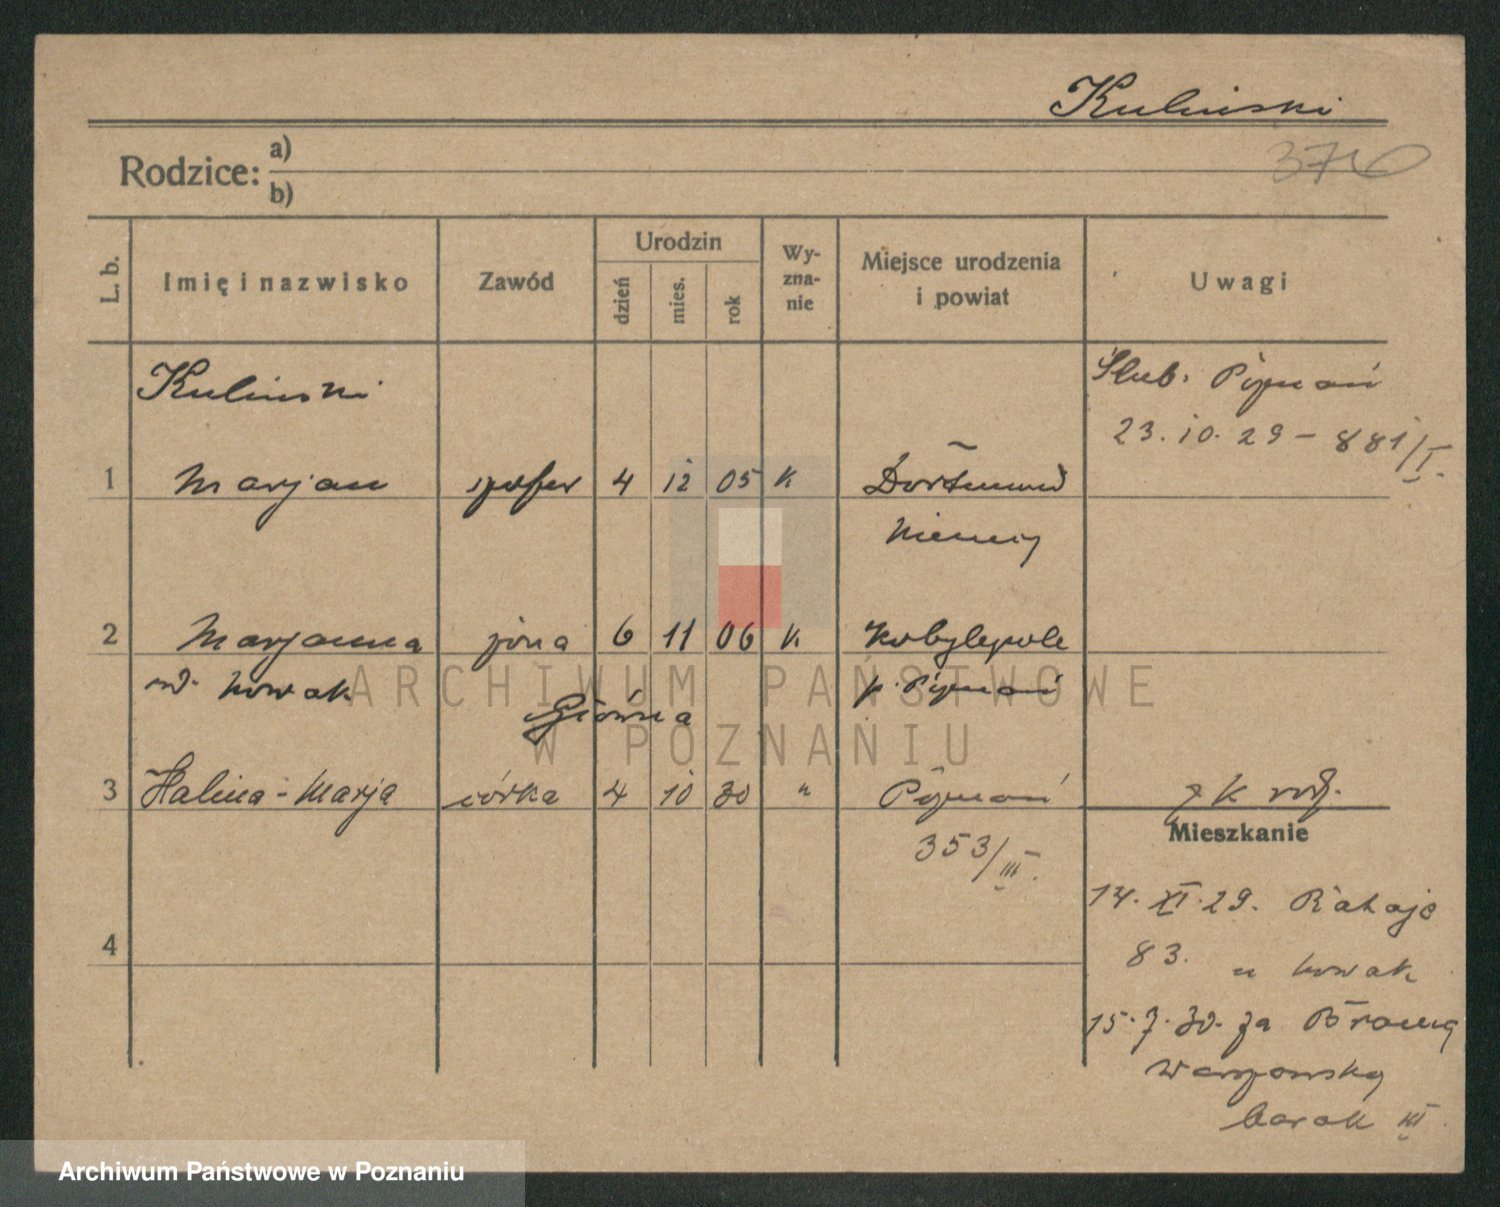 Kuliński
376
Rodzice: a)
b)
L. b.
Imię i nazwisko
Zawód
Urodzin
dzień
mies.
rok
Wy-
zna-
nie
Miejsce urodzenia
i powiat
Uwagi
Kuliński
Ślub. Poznań
23.10.29 - 881/I.
1 Marjan szofer 4 12 05 K Dortmund
Niemcy
2 Marjanna żona 6 11 06 K Kobylepole
Nowak p. Poznań
Główna
3 Halina-Marja córka 4 10 30 " Poznań
353/III.
Mieszkanie
14.XI.29. Rataje
83. u Nowak
15.7.30. za Bramą
Warszawską
barak III.
4
ARCHIWUM PAŃSTWOWE
W POZNANIU
Archiwum Państwowe w Poznaniu